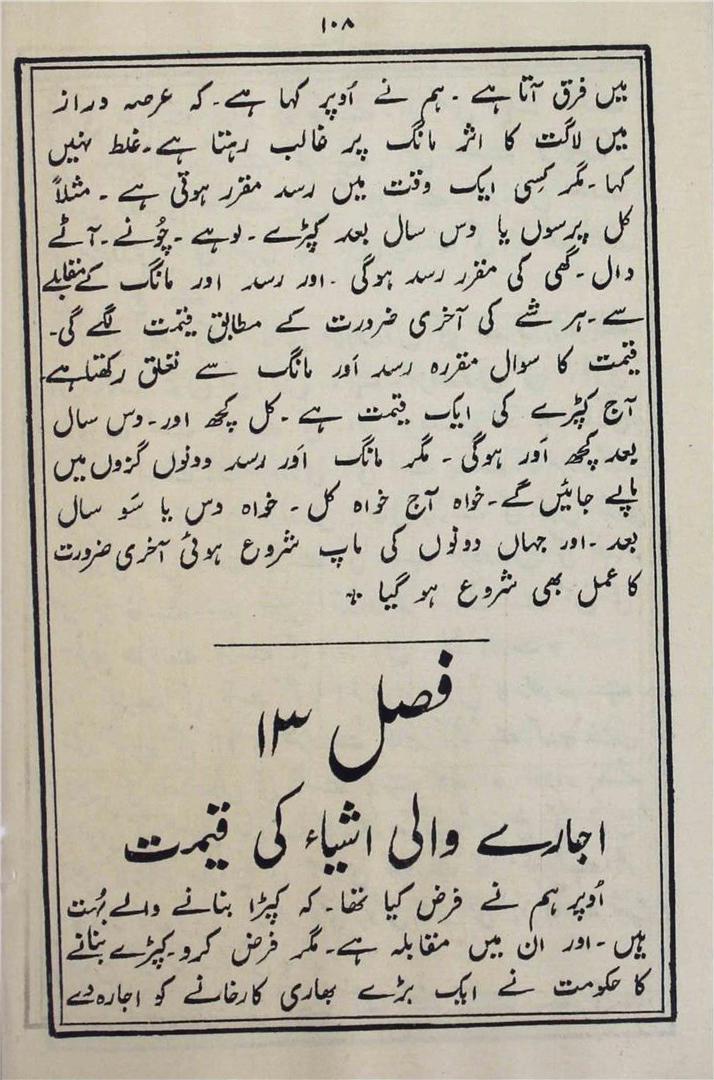 ۱۰۸
میں فرق آتا ہے ۔ ہم نے اُوپر کہا ہے ۔ کہ عرصہ دراز
میں لاگت کا اثر مانگ پر غالب رہتا ہے ۔ غلط نہیں
کہا ۔ مگر کِسی ایک وقت میں رسد مقرر ہوتی ہے ۔ مثلاً
کل پرسوں یا دس سال بعد کپڑے ۔ لوہے ۔ چُونے ۔ آٹے
دال ۔ گھی کی مقرر رسد ہوگی ۔ اور رسد اور مانگ کے مقابلے
سے ۔ ہر شے کی آخری ضرورت کے مطابق قیمت لگے گی ۔
قیمت کا سوال مقررہ رسد اَور مانگ سے تعلق رکھتا ہے
آج کپڑے کی ایک قیمت ہے ۔ کل کچھ اور ۔ دس سال
بعد کچھ اَور ہوگی ۔ مگر مانگ اَور رسد دونوں گزوں میں
ماپے جائیں گے ۔ خواہ آج خواہ کل ۔ خواہ دس یا سَو سال
بعد ۔ اور جہاں دونوں کی ماپ شروع ہوئی آخری ضرورت
کا عمل بھی شروع ہو گیا ٭
فصل ۱۳
اجارے والی اشیاء کی قیمت
اُوپر ہم نے فرض کیا تھا ۔ کہ کپڑا بنانے والے بہُت
ہیں ۔ اور ان میں مقابلہ ہے ۔ مگر فرض کرو ۔ کپڑے بنانے
کا حکومت نے ایک بڑے بھاری کارخانے کو اجارہ دے